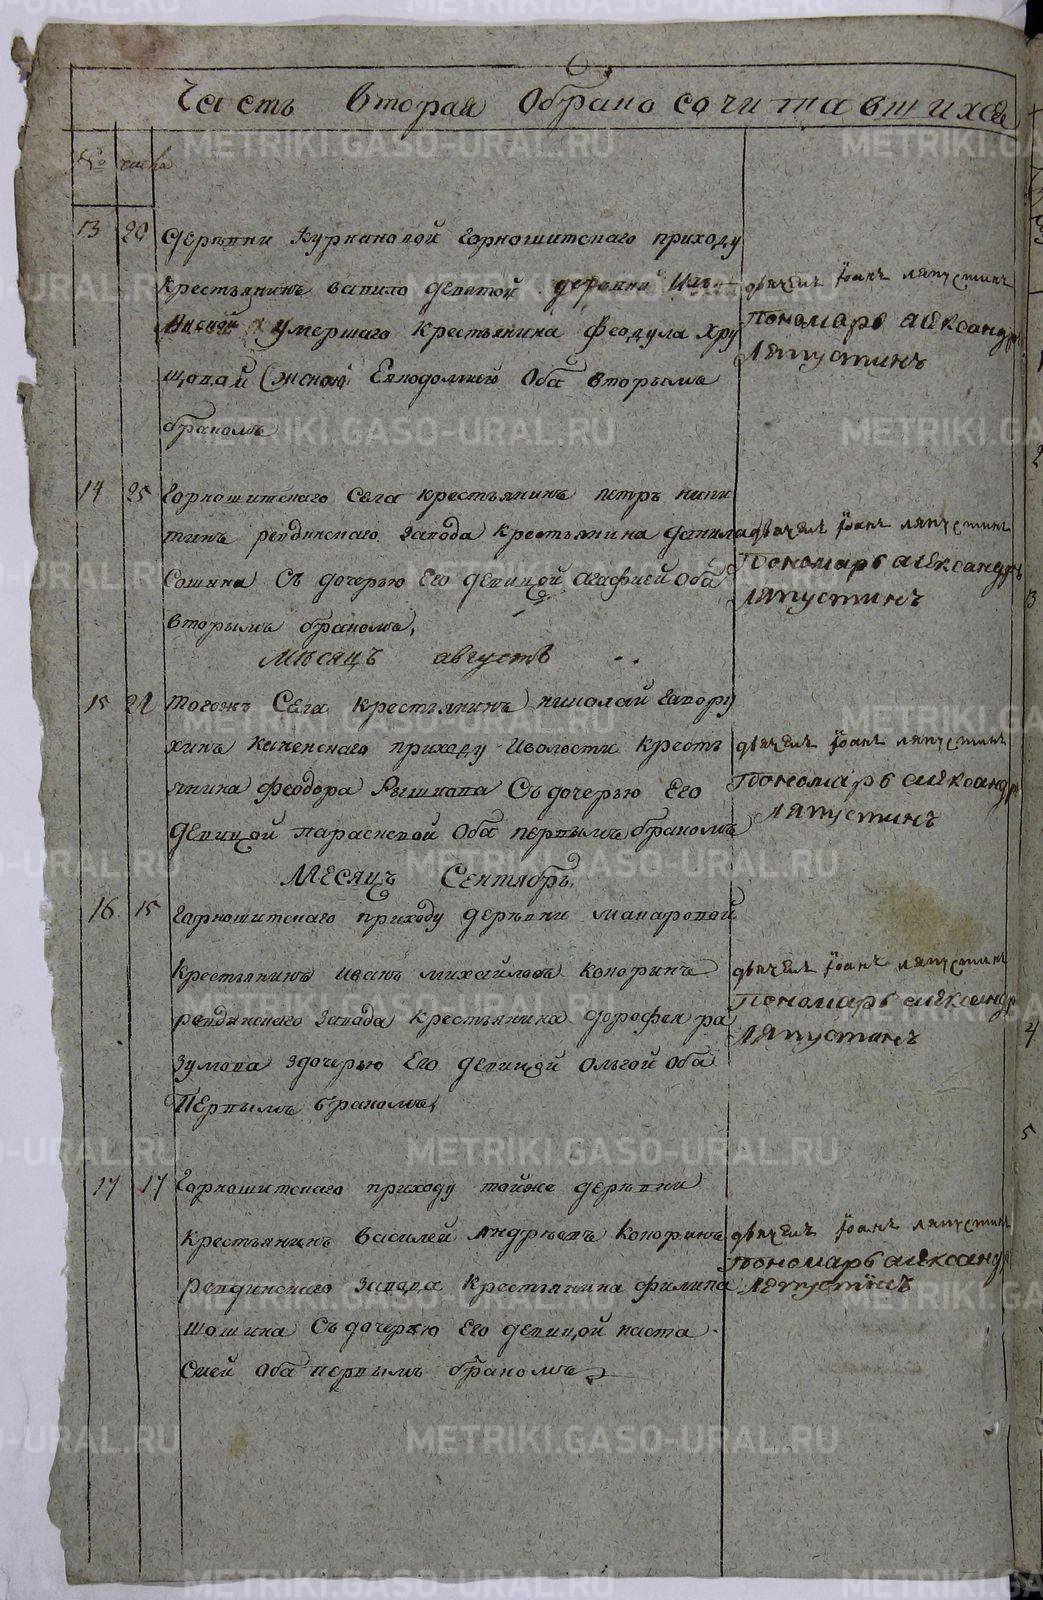 Часть вторая Обрако сочитавшихся
№ числа
13 20 Деревни Курнановой Горнощитскаго приходу
крестьянинъ вавило девятой деревни
умершаго крестьянина Феодула Хру
щовой женой Евподомией Оба вторымъ
бракомъ
дьячекъ Iоанъ ляпустинъ
пономарь александръ
Ляпустинъ
14 25 Горнощитскаго Села крестьянинъ петръ ники
тинъ ревдинскаго завода крестьянина данила
Сошина Съ дочерью Его девицой агафией Оба
вторымъ бракомъ,
дьячекъ Iоанъ ляпустинъ
Пономарь александръ
Ляпустинъ
Мѣсяцъ августъ
15 21 тогожъ Села крестьянинъ николай
хинъ приходу и волости кресть
янина феодора Рышкова Съ дочерью Его
девицой парасковой Оба первымъ бракомъ
дьячекъ Iоанъ ляпустинъ
Пономарь александръ
Ляпустинъ
Месяцъ Сентябрь
16 15 Горнощитскаго приходу деревни макаровой
Крестьянинъ иванъ михайловъ Коноринъ
ревдинскаго завода крестьянина дорофея ра
зумова здочерью Его девицой Ольгой Оба
Первымъ бракомъ,
дьячекъ Iоанъ ляпустинъ
Пономарь александръ
Ляпустинъ
17 17 Горнощитскаго приходу тойже деревни
крестьянинъ василей Андрѣевъ Коноринъ
ревдинскаго завода крестьянина филипа
шошина Съ дочерью Его девицой наста
сией Оба первымъ бракомъ
дьячекъ Iоанъ ляпустинъ
Пономарь александръ
Ляпустинъ
METRIKI.GASO-URAL.RU